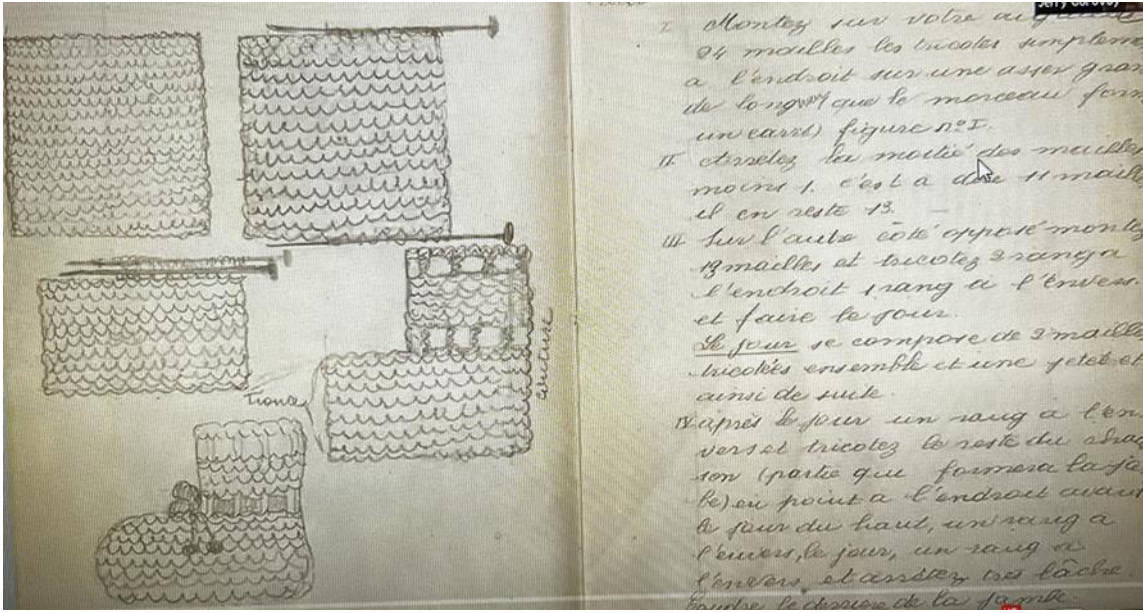 Jerry Corovoy
I Montez sur votre
24 mailles les tricotez simplem
a l'endroit sur une assez gran
de longueur que le morceau form
un carré) figure nº I.
II Arretez la moitié des mailles
moins 1. c'est a dire 11 maill
il en reste 13.
III Sur l'autre côté opposé montez
13 mailles et tricotez 2 rangs a
l'endroit 1 rang a l'envers.
et faire le jour.
Le jour se compose de 2 maill
tricotées ensemble et une jetée et
ainsi de suite.
IV après le jour un rang a l'en
vers et tricotez le reste du chau
son (partie que formera la ja
be) en point a l'endroit avant
le jour du haut, un rang a
l'envers, le jour, un rang a
l'envers et arretez très lâche
coudre le derriere de la jambe.
couture